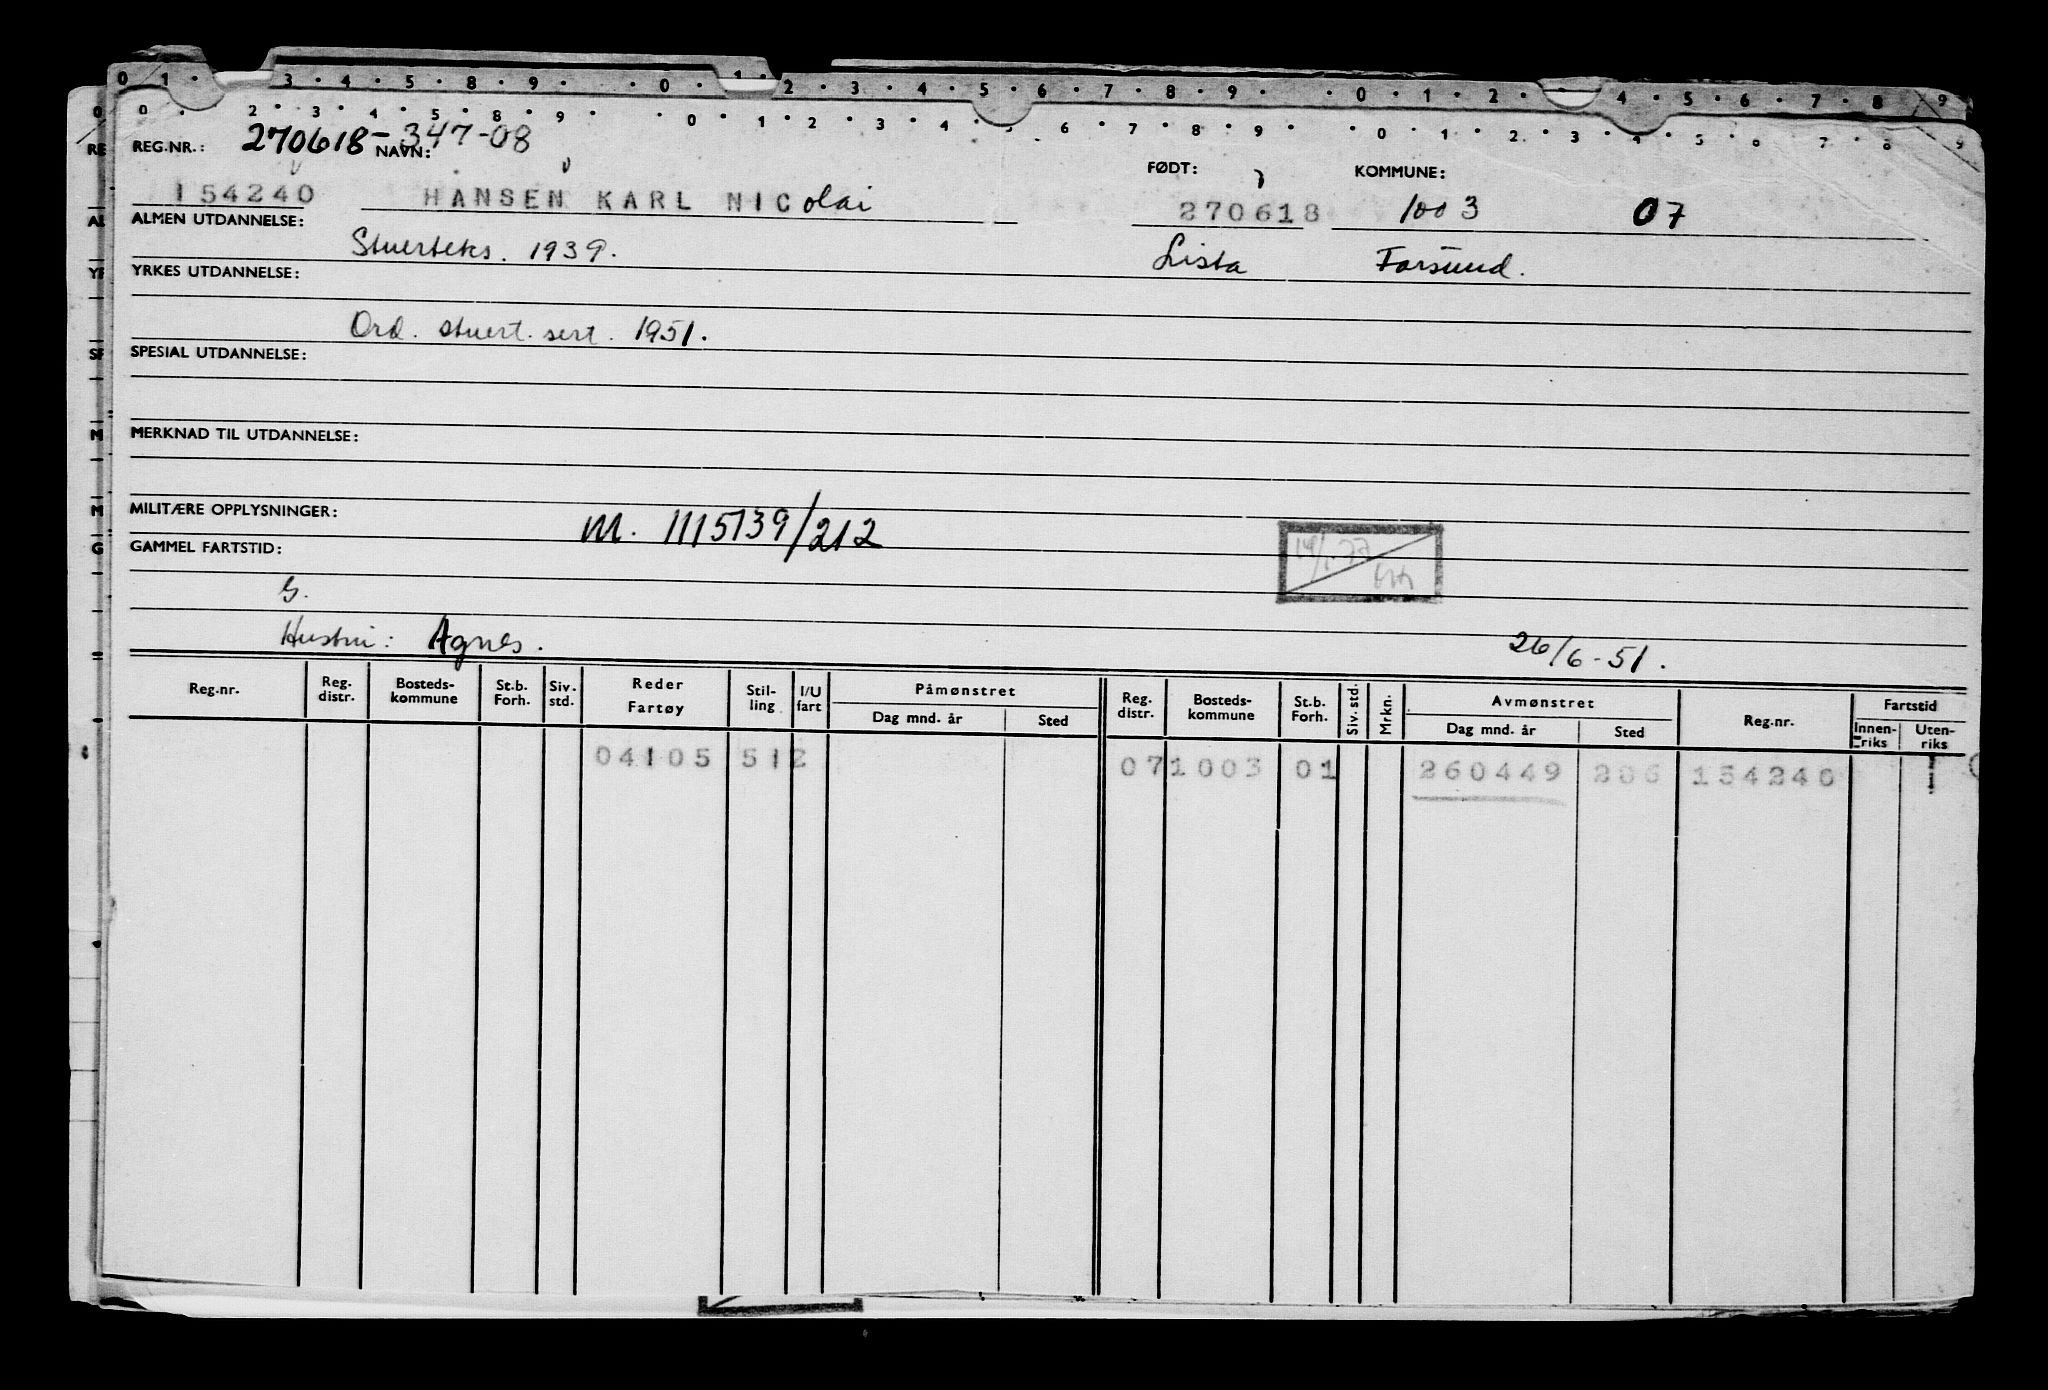 0 1 . 3 . 4 . 5 . 8 . 9 . . 0 . 1 . 2 . 3 . 4 . 5 . 6 . 7 . 8 . 9 . . 0 . 1 . 2 . 4 . 5 . 6 . 7 . 8 . 9
0 . . 2 . 3 . 4 . 5 . 8 . 9 . . 0 . 1 . 2 . 3 . 4 . 5 . 6 . 7 . 8 . 9 . . 0 . 1 . 2 . 3 . 4 . 5 . 6 . 7 . 8 . 9
REG.NR.: 270618-347-08 NAVN: FØDT: KOMMUNE:
154240 HANSEN KARL NIColai 270618 1003 07
ALMEN UTDANNELSE: Stuerteks. 1939. Lista Farsund.
YRKES UTDANNELSE:
Ord. stuert. sert. 1951.
SPESIAL UTDANNELSE:
MERKNAD TIL UTDANNELSE:
MILITÆRE OPPLYSNINGER: M. 1115139/212
GAMMEL FARTSTID:
G.
Hustru: Agnes. 26/6-51.
Reg.nr. Reg. distr. Bosteds-kommune St.b. Forh. Siv. std. Reder Fartøy Stil-ling I/U fart Påmønstret Dag mnd. år Sted Reg. distr. Bosteds-kommune St.b. Forh. Siv. std. Mrkn. Avmønstret Dag mnd. år Sted Reg.nr. Fartstid Innen-riks Uten-riks
04105 512 07 1003 01 260449 206 154240 1